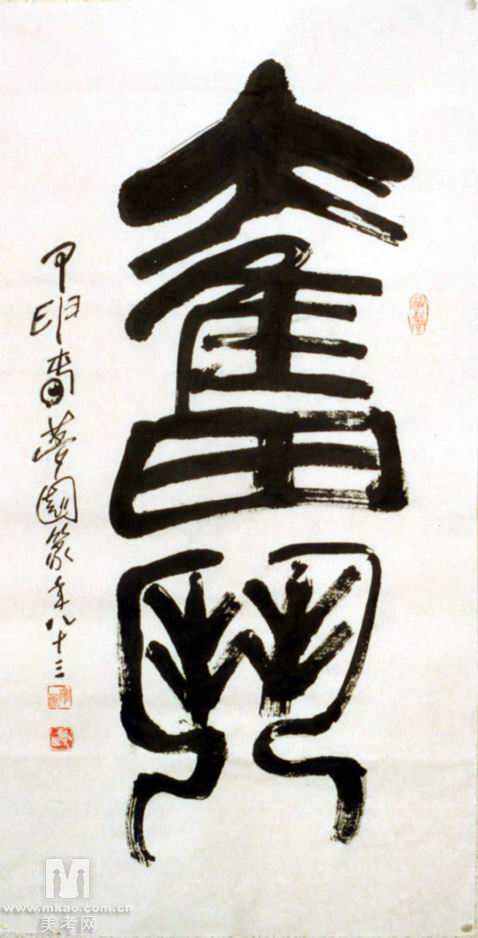 奮
甲申春夢園篆年八十三
www.mkao.com.cn
美考网